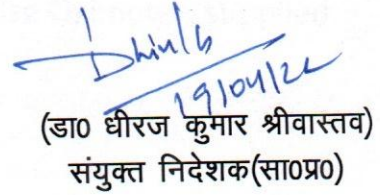 19/04/22
(डा0 धीरज कुमार श्रीवास्तव)
संयुक्त निदेशक(सा0प्र0)